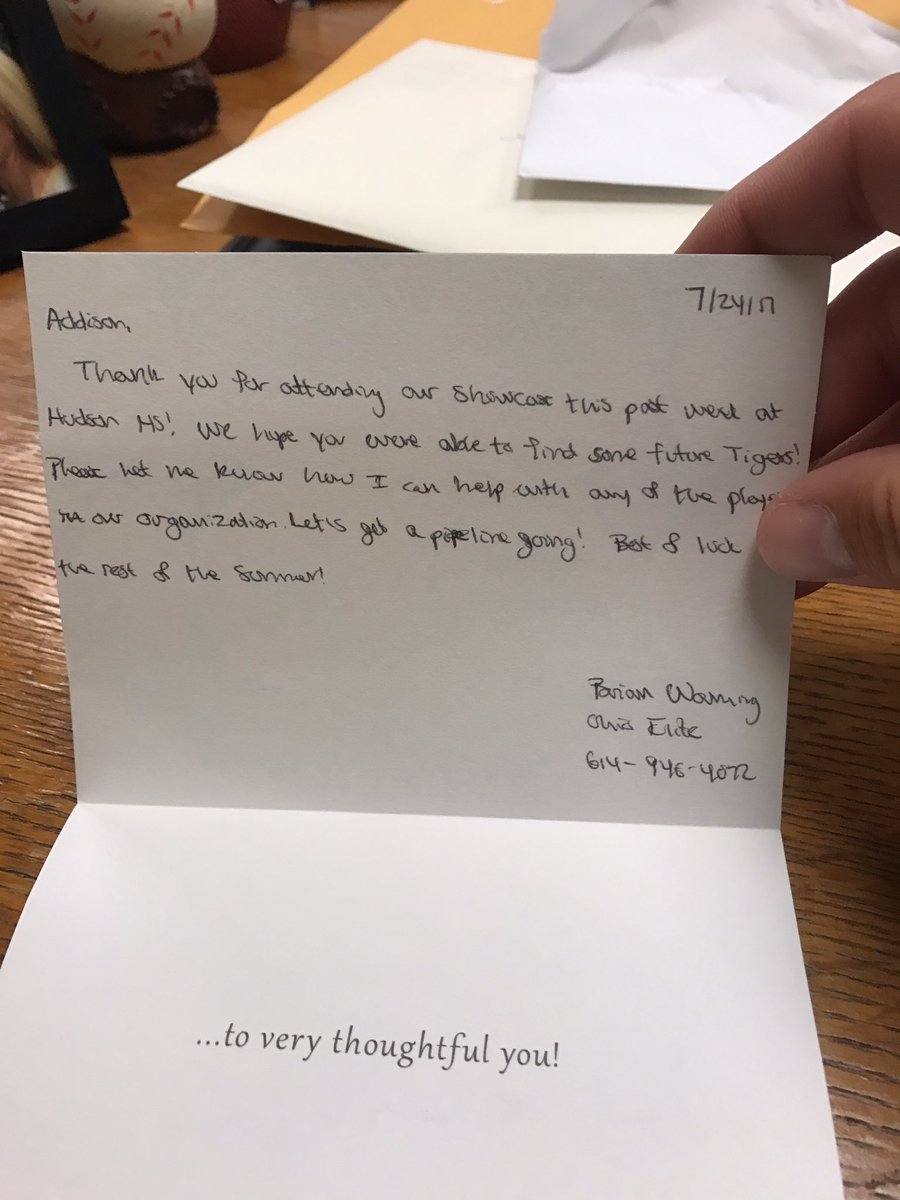 7/24/17
Addison,
Thank you for attending our showcase this past week at
Hudson HS! We hope you were able to find some future Tigers!
Please let me know how I can help with any of the players
in our organization. Let's get a pipeline going! Best of luck
the rest of the summer!
Warning
Ohio Elite
614-946-4072
...to very thoughtful you!